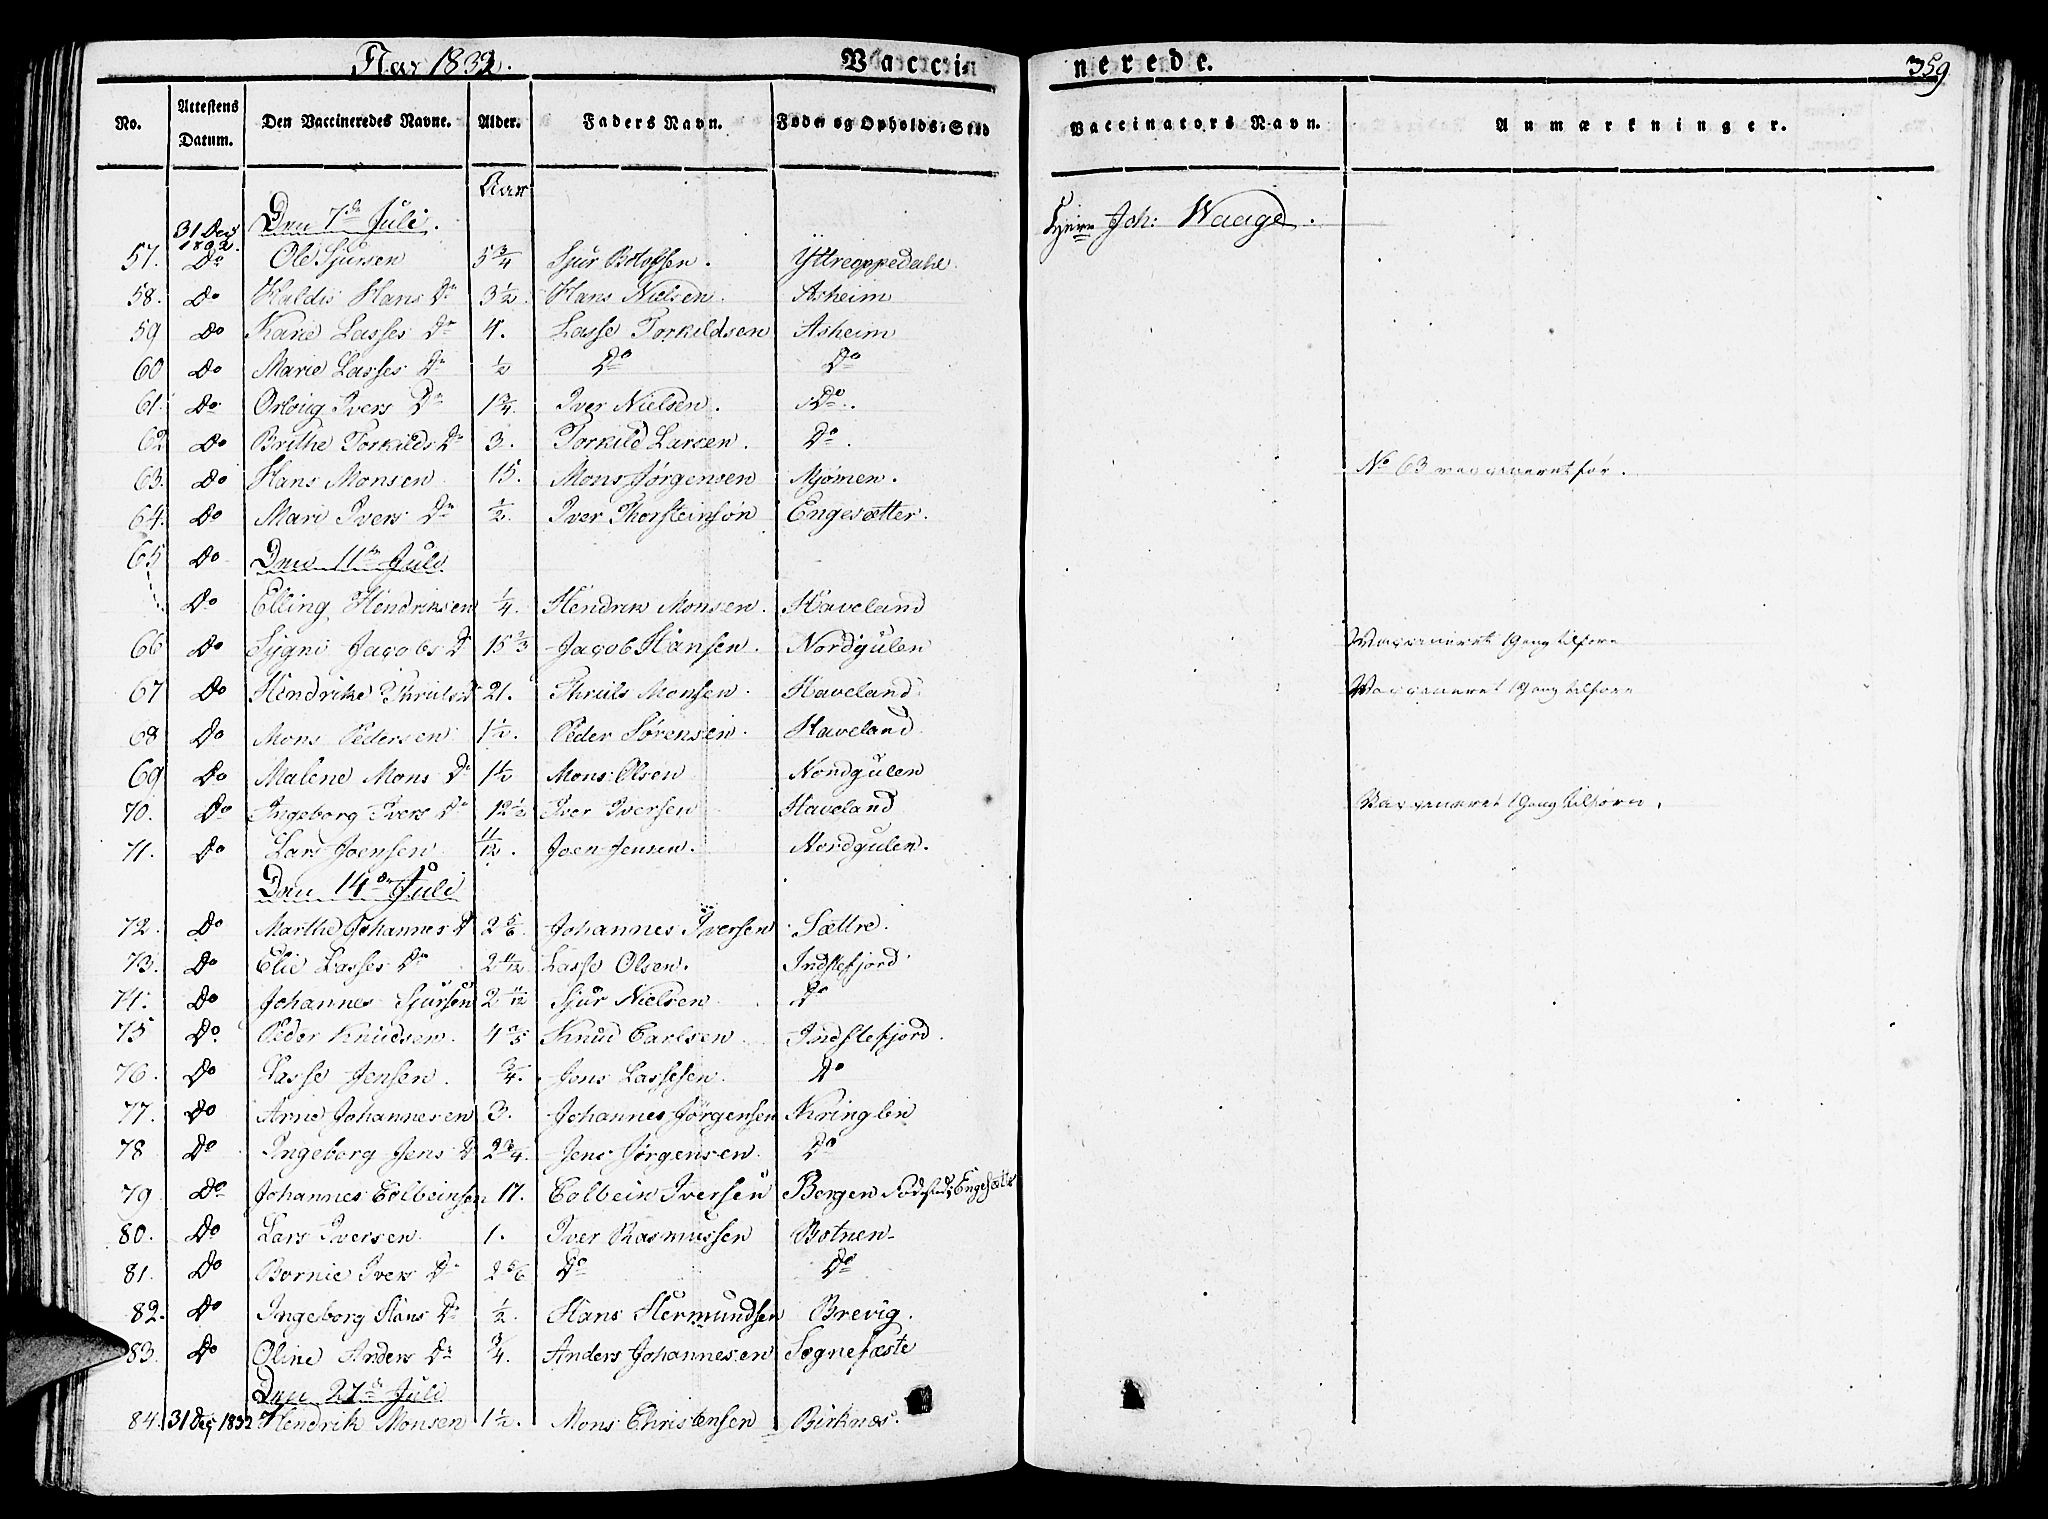 Aar 1832. Vaccin nerede. 359
No. Attestens Datum. Den Vaccineredes Navne. Alder. Faders Navn. Føde og Opholds-Sted Vaccinators Navn. Anmærkninger.
Aar
31 Dec 1832. Den 7de Juli. Joh: Waage.
57. Do Ole Sjursen 5 3/4 Sjur Ytreoppedahl.
58. Do Haldis Hans Dr 3 1/2. Hans Nielsen. Asheim
59 Do Karie Lasses Dr 4. Lasse Torkildsen Asheim
60 Do Marie Lasses Dr 1/2 Do Do
61. Do Orloug Ivers Dr 1 3/4. Iver Nielsen. Do.
62 Do Brithe Torkilds Dr 3. Torkild Larsen. Do.
63. Do Hans Monsen 15. Mons Jörgensen Mjömen. No 63 vaccineret för.
64. Do Mari Ivers Dr 1/2. Iver Thorsteinsön Engesætter.
65 Do Den 11te Juli
Do Elling Hendriksen 1/4. Hendrik Monsen. Haveland
66 Do Sygni Jacobs Dr 15 2/3 Jacob Hansen. Nordgulen Vaccineret 1 Gang tilforn
67 Do Hendrike Thruls Dr 21. Thruls Monsen. Haveland. Vaccineret 1 Gang tilforn
68 Do Mons Pedersen 1 1/2. Peder Sörensen. Haveland
69 Do Malene Mons Dr 1 1/2 Mons Olsen Nordgulen
70. Do Ingeborg Ivers Dr 12 1/2 Iver Iversen Haveland Vaccineret 1 Gang tilforn.
71. Do Lars Joensen 11/12. Joen Jensen. Nordgulen.
Den 14de Juli
72. Do Marthe Johannes Dr 2 5/6. Johannes Iversen Sættre.
73. Do Elie Lasses Dr 2 11/12 Lasse Olsen. Indstefjord
74. Do Johannes Sjursen 2 11/12 Sjur Nielsen Do
75 Do. Peder Knudsen. 4 2/5 Knud Carlsen Indstefjord.
76. Do Lasse Jensen. 3/4. Jens Lassesen. Do
77. Do Arne Johannesen 3. Johannes Jörgensen Kringlen
78 Do Ingeborg Jens Dr 2 3/4. Jens Jörgensen. Do
79 Do Johannes Colbeinsen 17. Colbein Iversen Bergen Födested Engesætter
80. Do Lars Iversen 1. Iver Rasmussen Botnen
81. Do Bornie Ivers Dr 2 5/6 Do Do
82. Do Ingeborg Hans Dr 1/2. Hans Hermundsen Brevig.
83. Do Oline Anders Dr 3/4. Anders Johannesen Sognefæste
Den 27de Juli
84. 31 Dec 1832 Hendrik Monsen 1 1/2. Mons Christensen Birknes.